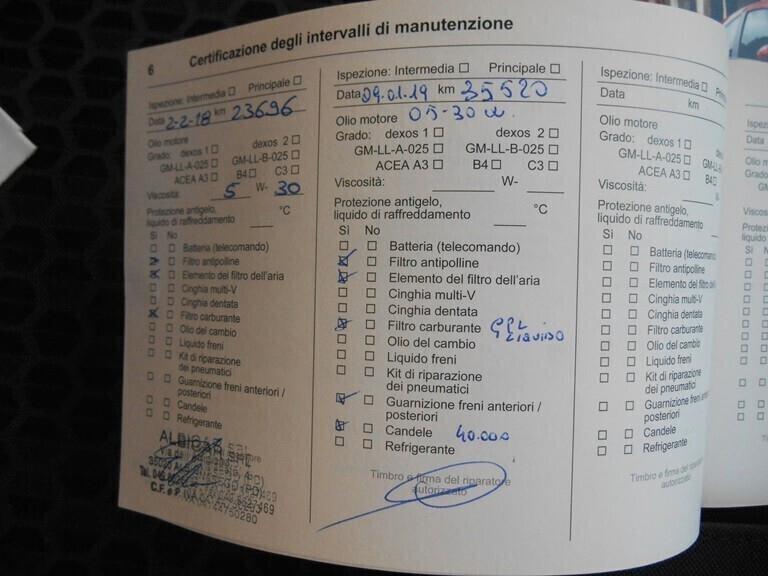 6 Certificazione degli intervalli di manutenzione
Ispezione: Intermedia ☐ Principale ☐
Data 2-2-18 km 23696
Olio motore
Grado: dexos 1 ☐ dexos 2 ☐
GM-LL-A-025 ☐ GM-LL-B-025 ☐
ACEA A3 ☐ B4 ☐ C3 ☐
Viscosità: 5 W- 30
Protezione antigelo,
liquido di raffreddamento ___ °C
Sì No
☐ ☐ Batteria (telecomando)
☒ ☐ Filtro antipolline
☒ ☐ Elemento del filtro dell'aria
☐ ☐ Cinghia multi-V
☐ ☐ Cinghia dentata
☒ ☐ Filtro carburante
☐ ☐ Olio del cambio
☐ ☐ Liquido freni
☐ ☐ Kit di riparazione
dei pneumatici
☐ ☐ Guarnizione freni anteriori /
posteriori
☐ ☐ Candele
☐ ☐ Refrigerante
Ispezione: Intermedia ☐ Principale ☐
Data 09.01.19 km 35520
Olio motore 05-30 w.
Grado: dexos 1 ☐ dexos 2 ☐
GM-LL-A-025 ☐ GM-LL-B-025 ☐
ACEA A3 ☐ B4 ☐ C3 ☐
Viscosità: ___ W- ___
Protezione antigelo,
liquido di raffreddamento ___ °C
Sì No
☐ ☐ Batteria (telecomando)
☒ ☐ Filtro antipolline
☒ ☐ Elemento del filtro dell'aria
☐ ☐ Cinghia multi-V
☐ ☐ Cinghia dentata
☒ ☐ Filtro carburante GPL LIQUIDO
☐ ☐ Olio del cambio
☐ ☐ Liquido freni
☐ ☐ Kit di riparazione
dei pneumatici
☒ ☐ Guarnizione freni anteriori /
posteriori
☒ ☐ Candele 40.000
☐ ☐ Refrigerante
Timbro e firma del riparatore
autorizzato
Ispezione: Intermedia ☐
Data km
Olio motore
Grado: dexos 1 ☐
GM-LL-A-025 ☐
ACEA A3 ☐ B4 ☐
Viscosità:
Protezione antigelo,
liquido di raffreddamento
Sì No
☐ ☐ Batteria (telecomando)
☐ ☐ Filtro antipolline
☐ ☐ Elemento del filtro
☐ ☐ Cinghia multi-V
☐ ☐ Cinghia dentata
☐ ☐ Filtro carburante
☐ ☐ Olio del cambio
☐ ☐ Liquido freni
☐ ☐ Kit di riparazione
dei pneumatici
☐ ☐ Guarnizione freni
posteriori
☐ ☐ Candele
☐ ☐ Refrigerante
Timbro e firma del